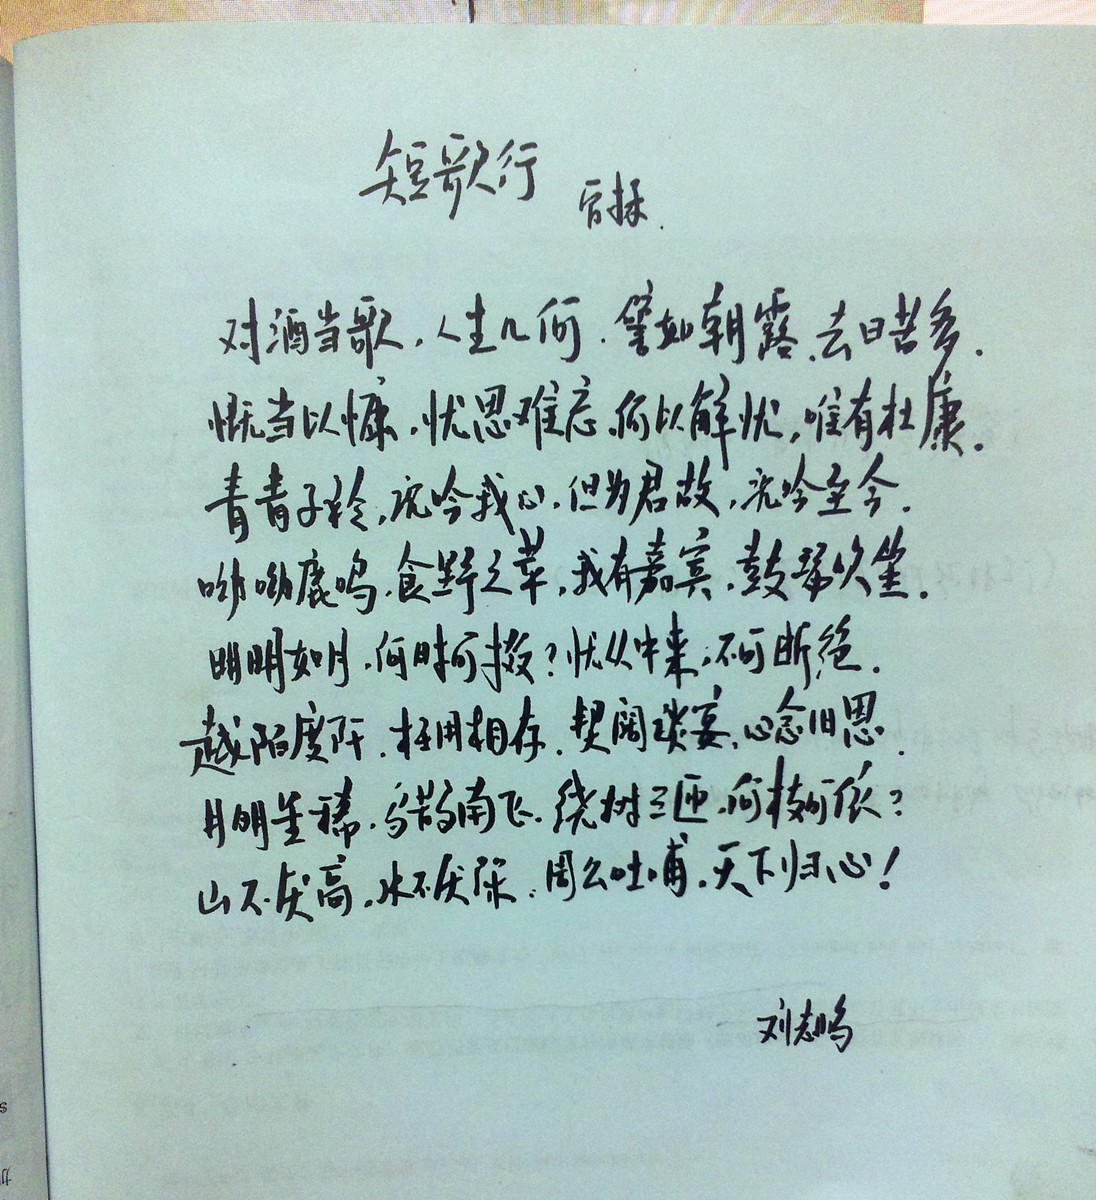 短歌行
曹操.
对酒当歌,人生几何.譬如朝露,去日苦多.
慨当以慷,忧思难忘,何以解忧,唯有杜康.
青青子衿,沉吟我心,但为君故,沉吟至今.
呦呦鹿鸣,食野之苹,我有嘉宾,鼓瑟吹笙.
明明如月,何时可掇?忧从中来,不可断绝.
越陌度阡,枉用相存.契阔谈宴,心念旧恩.
月明星稀,乌鹊南飞.绕树三匝,何枝可依?
山不厌高,水不厌深.周公吐哺,天下归心!
刘志鸣